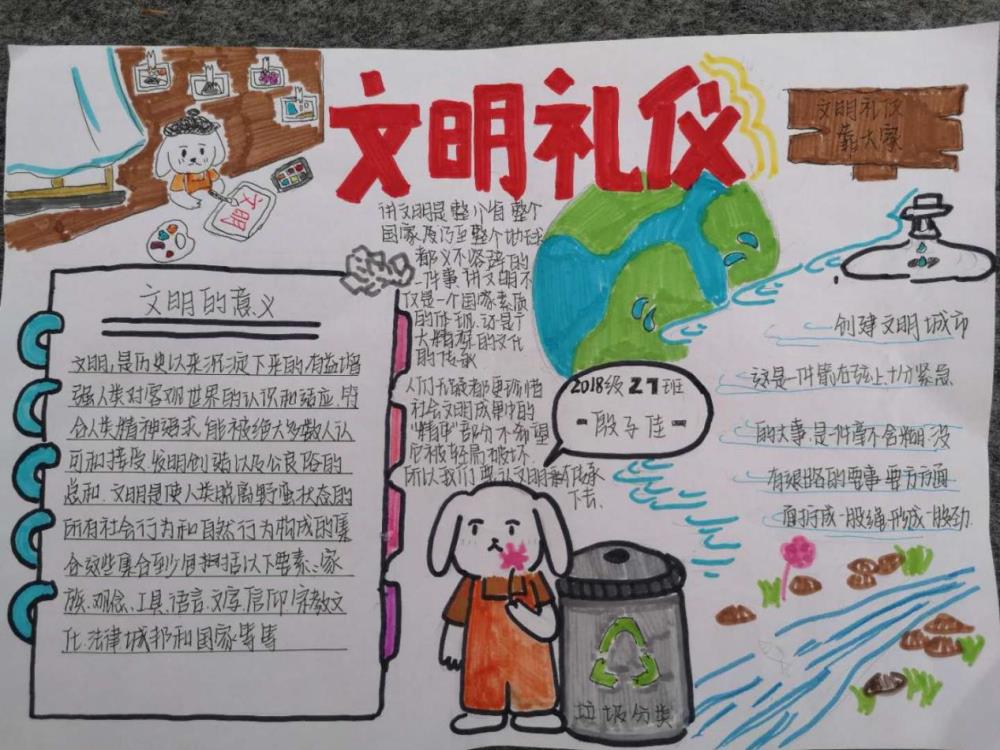 文明礼仪
文明礼仪
靠大家
文明
讲文明是整个省整个
国家及乃至整个地球
都义不容辞的
一件事,讲文明不
仅是一个国家素质
的体现,还是广
大精深的文化
的传承
人们无疑都更珍惜
社会文明成果中的
“精华”部分不希望
它被轻易破坏.
所以我们要让文明
下去.
文明的意义
文明,是历史以来沉淀下来的,有益增
强人类对客观世界的认识和适应,符
合人类精神追求,能被绝大多数人认
可和接受,发明创造以及公良俗的
总和.文明是使人类脱离野蛮状态的
所有社会行为和自然行为构成的集
合这些集合到少有把括以下要素:家
族、观念、工具、语言、文字、信仰、宗教文
化、法律城邦和国家等等
2018级21班
-殷子佳-
创建文明城市
这是一件箭在弦上,十分紧急
的大事,是件毫不含糊,没
有退路的要事要方方面
面拧成一股绳,形成一股劲.
垃圾分类